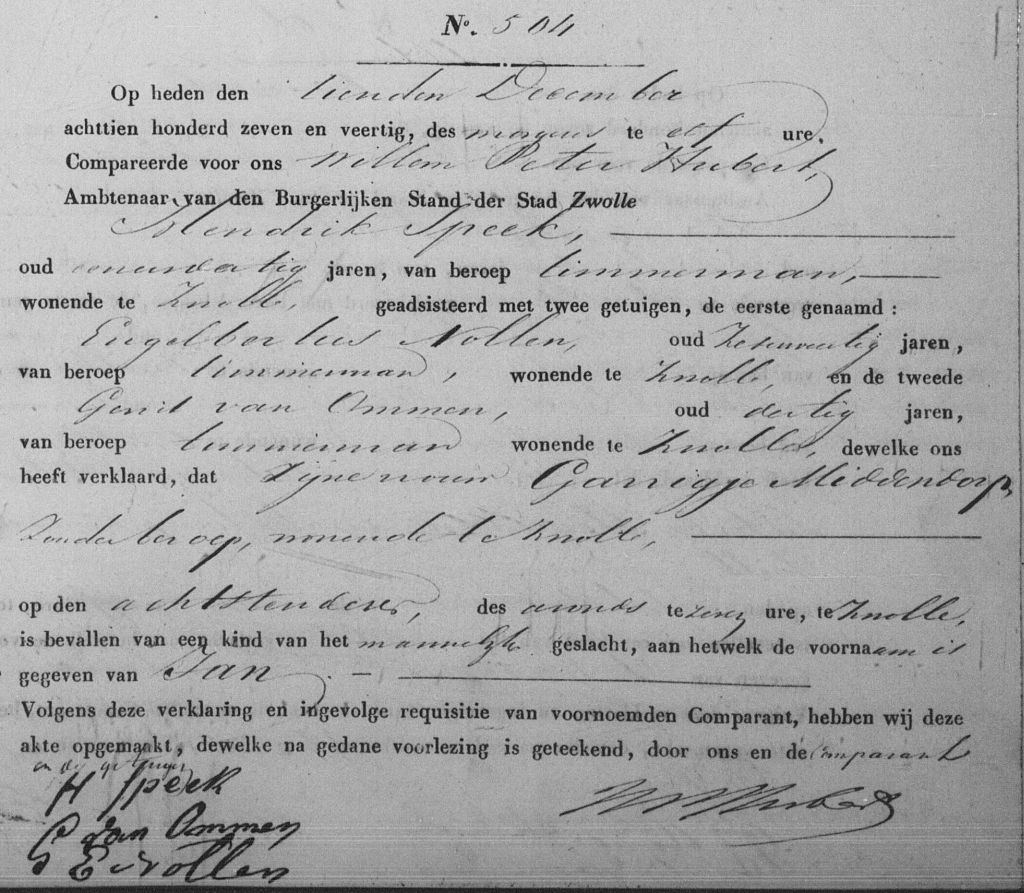 No. 504
Op heden den tienden December
achttien honderd zeven en veertig, des morgens te elf ure.
Compareerde voor ons Willem Peter Hubert,
Ambtenaar van den Burgerlijken Stand der Stad Zwolle
Hendrik Speek,
oud eenendertig jaren, van beroep timmerman,
wonende te Zwolle, geadsisteerd met twee getuigen, de eerste genaamd :
Engelbertus Nollen, oud zesenveertig jaren,
van beroep timmerman, wonende te Zwolle en de tweede
Gerrit van Ommen, oud dertig jaren,
van beroep timmerman wonende te Zwolle, dewelke ons
heeft verklaard, dat zijne vrouw Garrigje Middendorp,
zonder beroep, wonende te Zwolle,
op den achtsten dezer, des avonds te zeven ure, te Zwolle,
is bevallen van een kind van het mannelijk geslacht, aan hetwelk de voornaam is
gegeven van Jan
Volgens deze verklaring en ingevolge requisitie van voornoemden Comparant, hebben wij deze
akte opgemaakt, dewelke na gedane voorlezing is geteekend, door ons en de comparant
en de getuigen
H Speek
G van Ommen
E Nollen